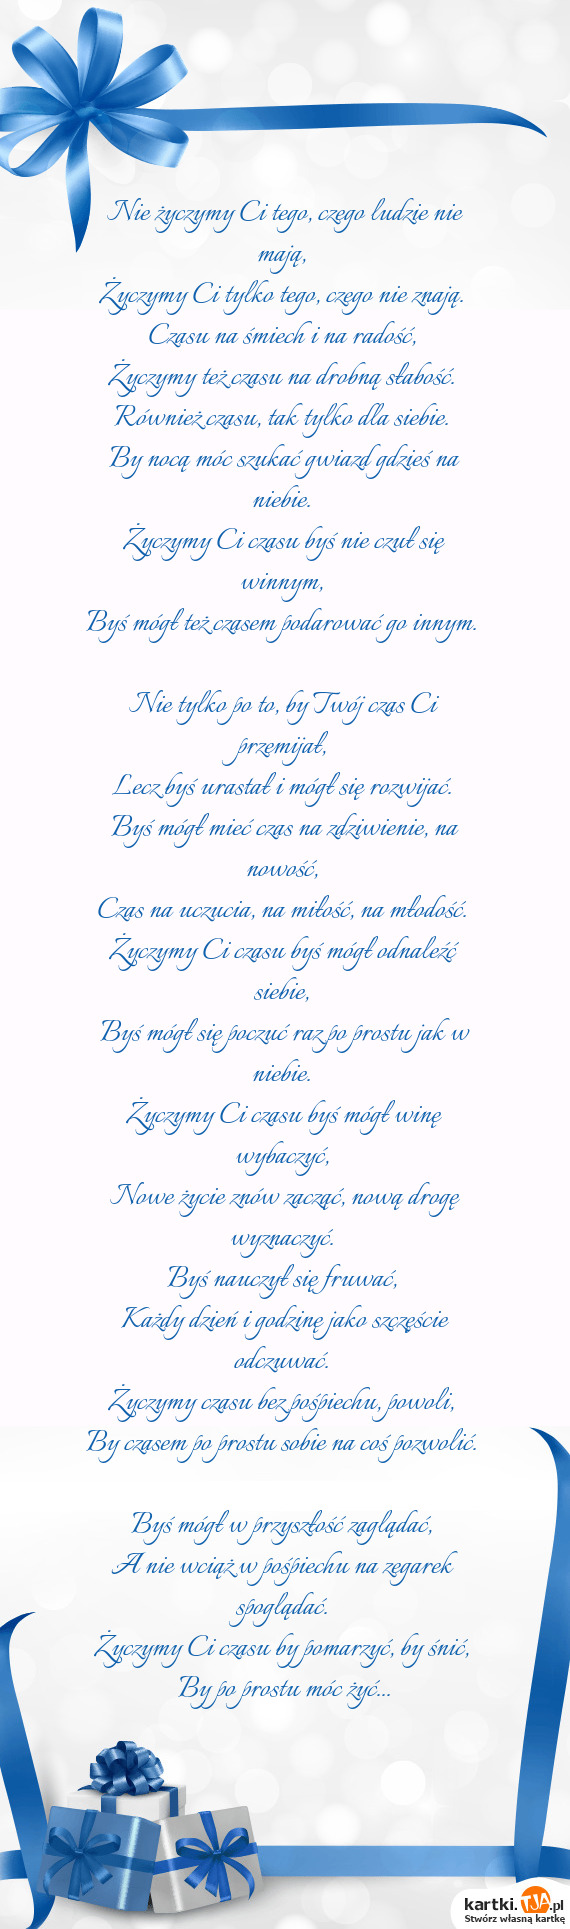 Nie życzymy Ci tego, czego ludzie nie
mają,
Życzymy Ci tylko tego, czego nie znają.
Czasu na śmiech i na radość,
Życzymy też czasu na drobną słabość.
Również czasu, tak tylko dla siebie.
By nocą móc szukać gwiazd gdzieś na
niebie.
Życzymy Ci czasu byś nie czuł się
winnym,
Byś mógł też czasem podarować go innym.
Nie tylko po to, by Twój czas Ci
przemijał,
Lecz byś urastał i mógł się rozwijać.
Byś mógł mieć czas na zdziwienie, na
nowość,
Czas na uczucia, na miłość, na młodość.
Życzymy Ci czasu byś mógł odnaleźć
siebie,
Byś mógł się poczuć raz po prostu jak w
niebie.
Życzymy Ci czasu byś mógł winę
wybaczyć,
Nowe życie znów zacząć, nową drogę
wyznaczyć.
Byś nauczył się fruwać,
Każdy dzień i godzinę jako szczęście
odczuwać.
Życzymy czasu bez pośpiechu, powoli,
By czasem po prostu sobie na coś pozwolić.
Byś mógł w przyszłość zaglądać,
A nie wciąż w pośpiechu na zegarek
spoglądać.
Życzymy Ci czasu by pomarzyć, by śnić,
By po prostu móc żyć...
kartki.TJA.pl
Stwórz własną kartkę